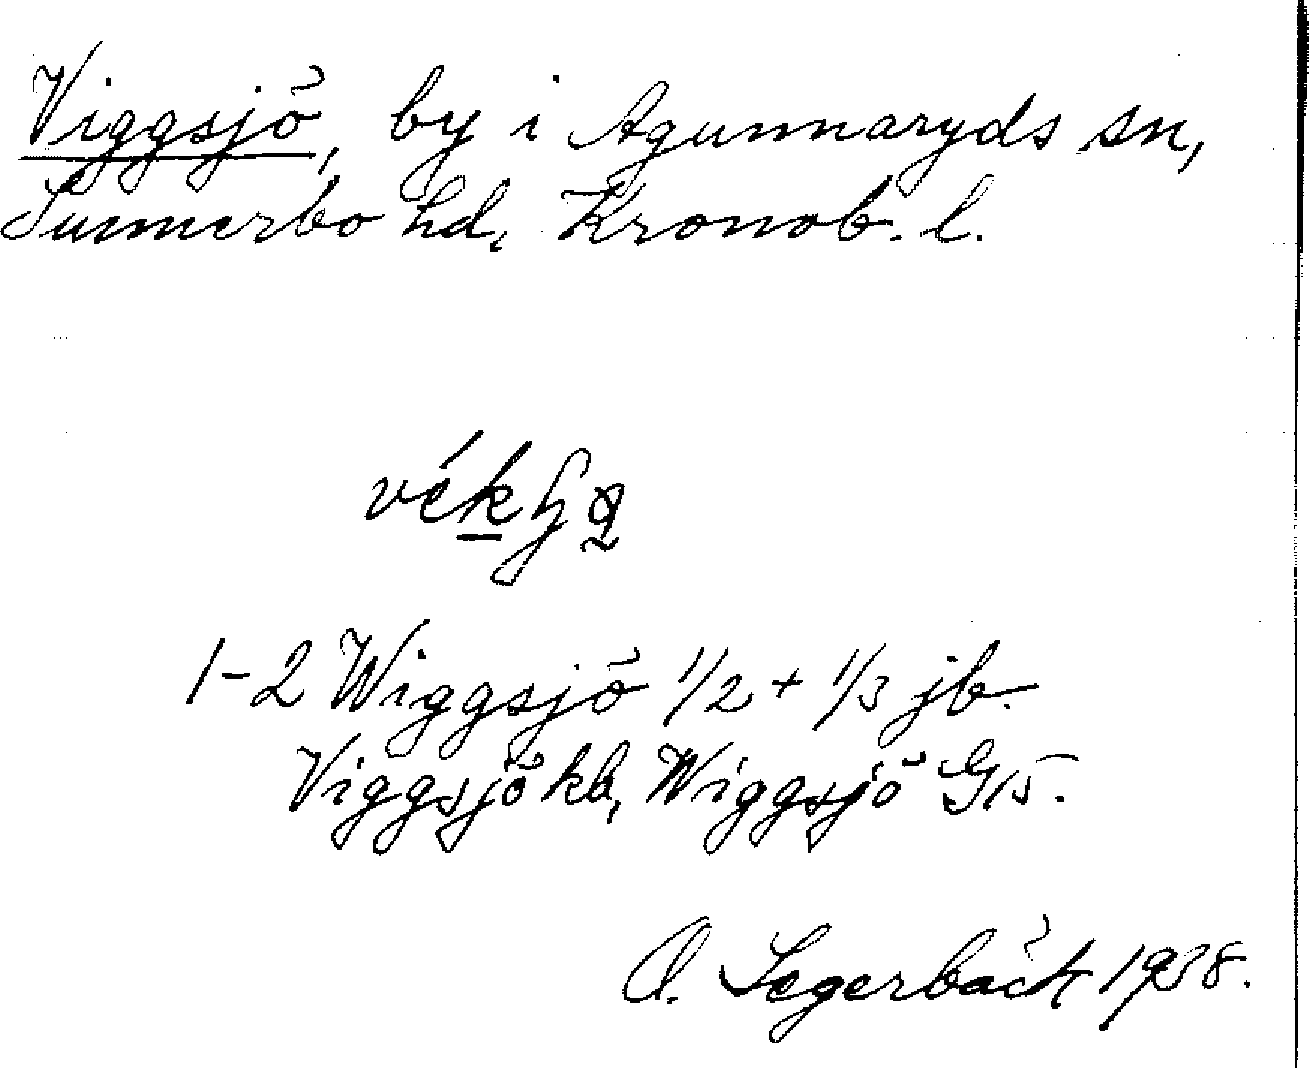 Viggsjö, by i Agunnaryds sn,
Sunnerbo hd, Kronob. l.
1-2 Wiggsjö 1/2 + 1/3 jb.
Viggsjö kb, Wiggsjö G15.
O. Segerbäck 1938.